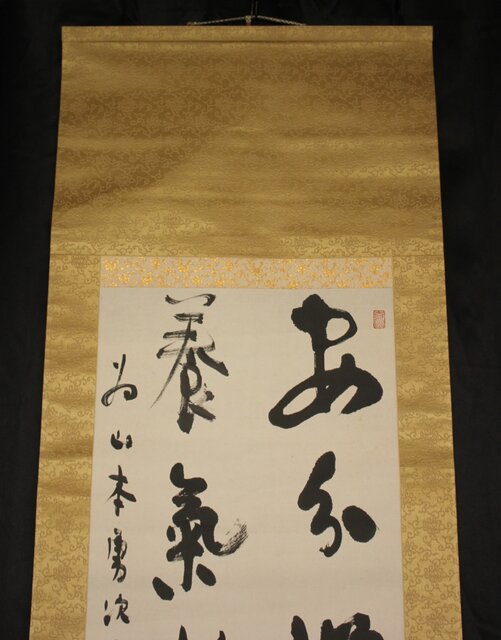 安分
養氣
為山本勇次